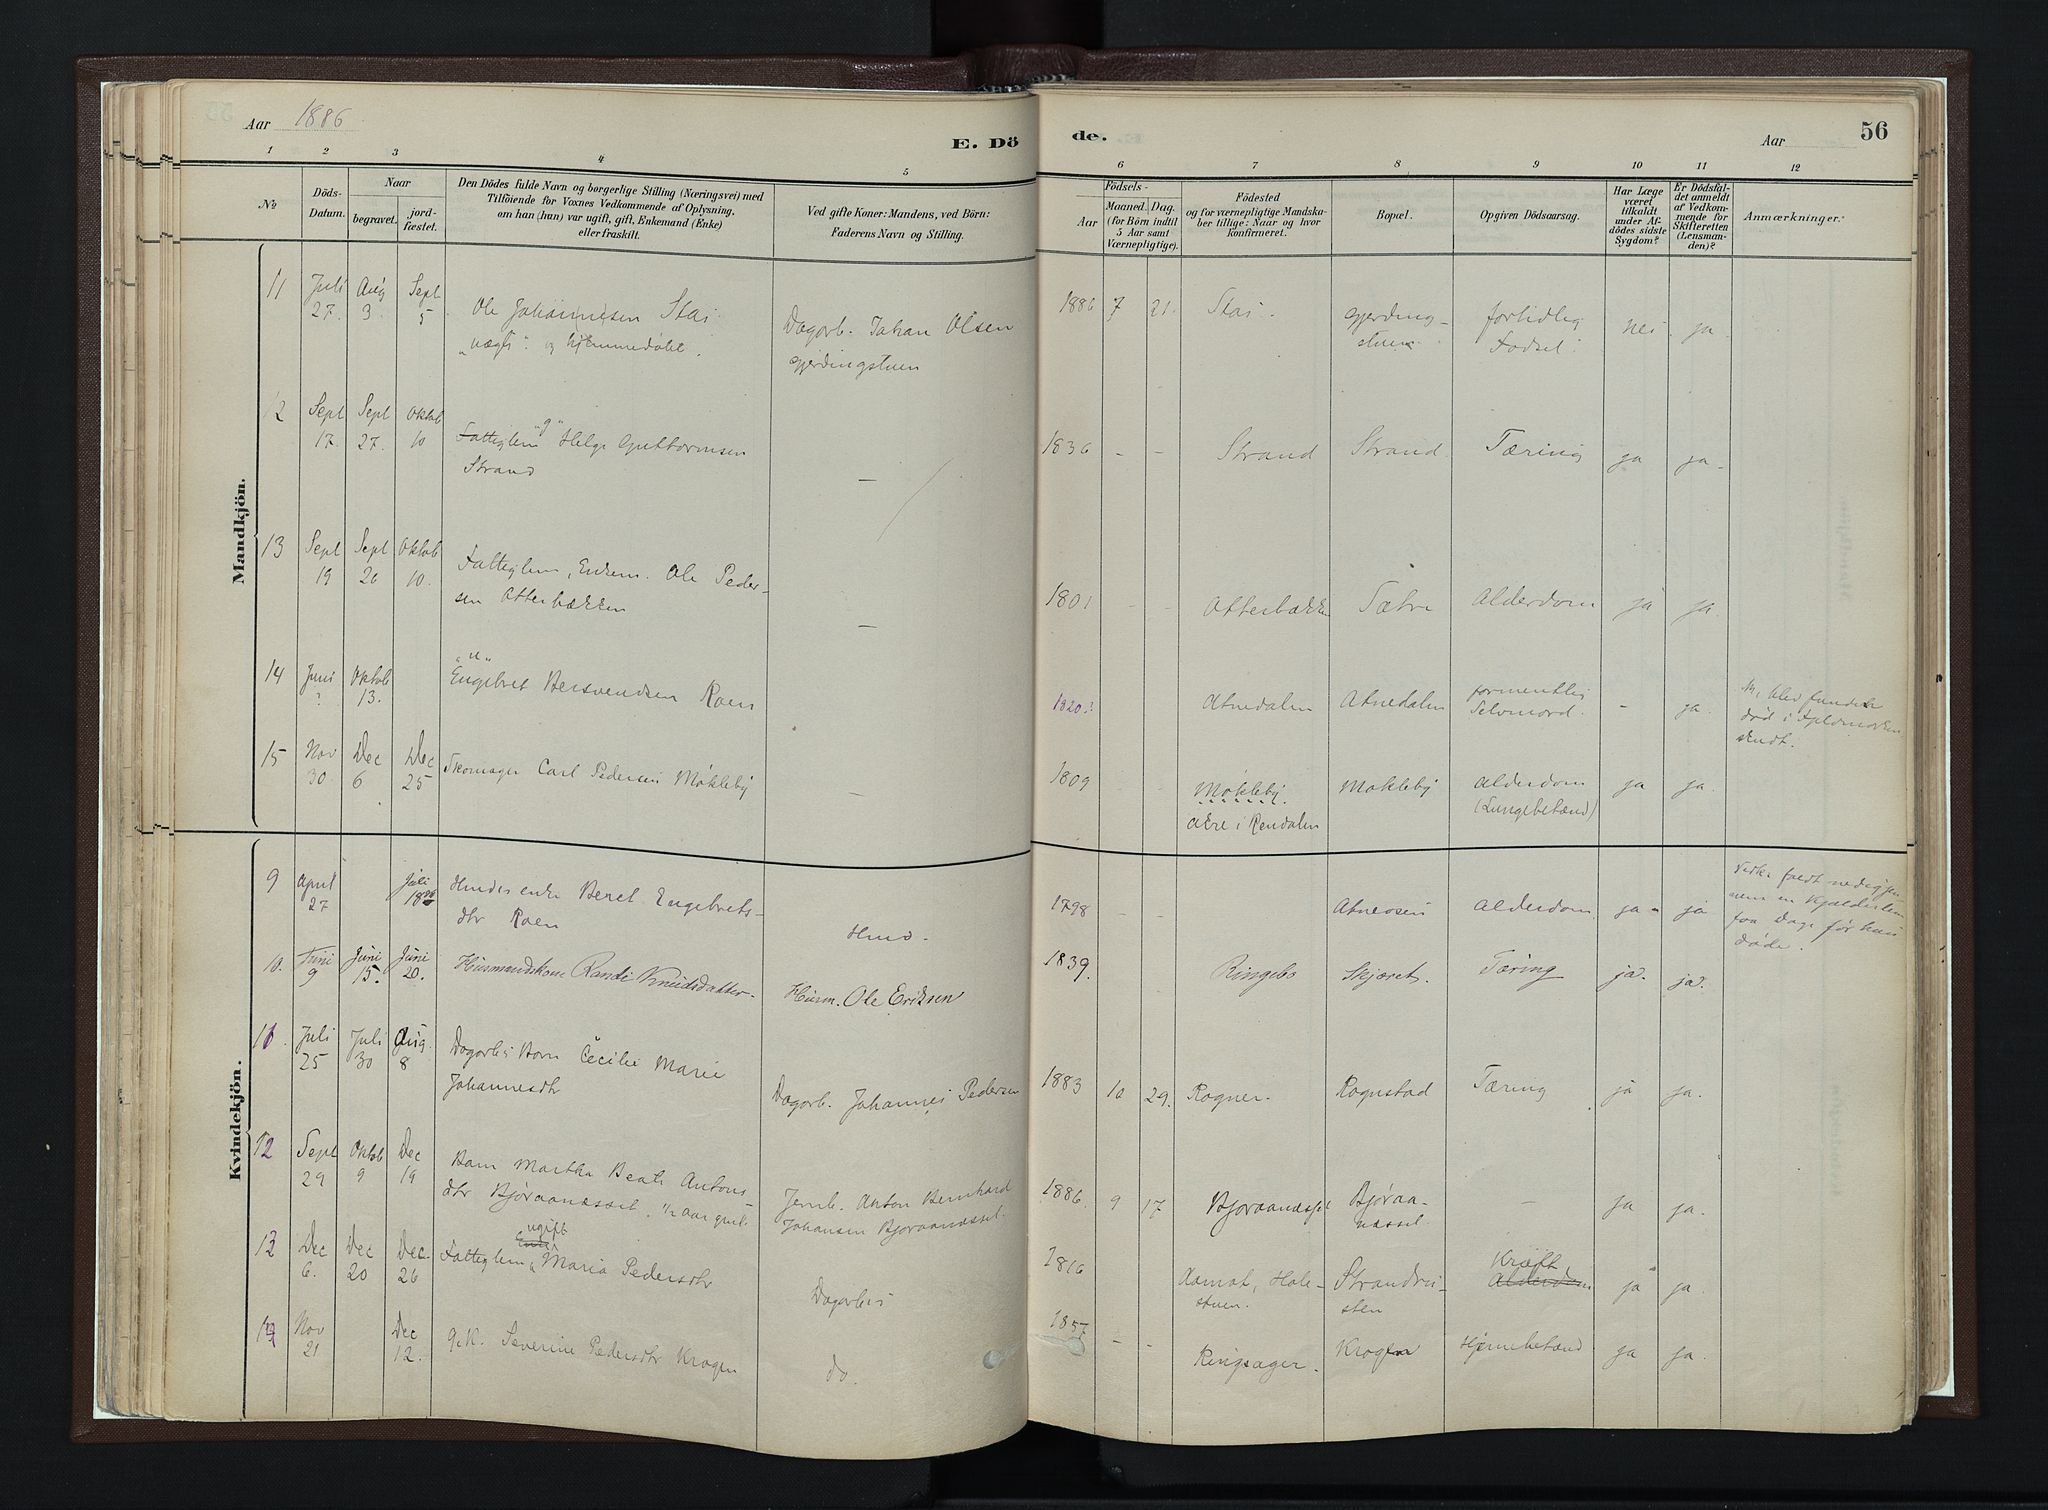 Aar 1886
E. Dö
de.
Aar
56
1 2 3 4 5 6 7 8 9 10 11 12
№
Döds-
Datum.
Naar
begravet.
jord-
fæstet.
Den Dödes fulde Navn og borgerlige Stilling (Næringsvei) med
Tilföiende for Voxnes Vedkommende af Oplysning,
om han (hun) var ugift, gift, Enkemand (Enke)
eller fraskilt.
Ved gifte Koner: Mandens, ved Börn:
Faderens Navn og Stilling.
Födsels-
Aar
Maaned. Dag.
(for Börn indtil
5 Aar samt
Værnepligtige).
Födested
og for værnepligtige Mandska-
ber tillige: Naar og hvor
konfirmeret.
Bopæl.
Opgiven Dödsaarsag.
Har Læge
været
tilkaldt
under Af-
dödes sidste
Sygdom?
Er Dödsfal-
det anmeldt
af Vedkom-
mende for
Skifteretten
(Lensman-
den)?
Anmærkninger.
Mandkjön.
11 Juli Aug Sept
27. 3. 5.
Ole Johannesen Stai
"uægte" og hjemmedøbt.
Dagarb. Johan Olsen
Gjerdingstuen
1886 7 21. Stai. Gjerding-
stuen.
fortidlig
Fødsel.
nei ja
12 Sept Sept Oktob
17. 27. 10
Fattiglem "g" Helge Guttormsen
Strand
—
1836 - - Strand Strand. Tæring ja ja.
13 Sept Sept Oktob
19 26 10.
Fattiglem, Enkem. Ole Peder-
sen Atterbækken
—
1801 - - Atterbækken Sætre Alderdom ja ja.
14 Juni Oktob
? 13.
"u"
Engebret Bersvendsen Roen
1820? Atnedalen Atnedalen formentlig
Selvmord. - ja.
blev funden
død i
15 Nov Dec Dec
30. 6 25
Skomager Carl Pedersen Møkleby
—
1809 Møkleby.
Øvre i Rendalen
Møkleby Alderdom
(Lungebetænd)
ja ja.
Kvindekjön.
9 April Juli
27 18
Huusm. enke Beret Engebrets-
dtr Roen
Husm.
1798 - - Atneosen Alderdom ja - ja
faldt ned igjen-
nem en Kjælderlem
faa Dage før hun
døde.
10. Juni Juni Juni
9 15. 20.
Husmandskone Randi Knudsdatter.
Husm. Ole Eriksen
1839. Ringebo Skjæset. Tæring ja. ja.
11. Juli Juli Aug.
25 30 8
Dagarb.s Barn Cecilie Marie
Johannesdtr
Dagarb. Johannes Pedersen
1883 10 29. Rogner. Rognstad Tæring ja ja.
12 Sept Oktob Dec
29 9 19
Barn Martha Beate Antons-
dtr Bjøraanæsset. 1/2 aar gml.
Jernb. Anton Bernhard
Johansen Bjøraanæsset.
1886. 9 17 Bjøraanæsset Bjøraa-
næsset. - ja ja.
13 Dec Dec Dec.
6. 20 26
ugift
Fattiglem Enke Maria Pedersdtr
Dagarb.s
1816 Aamot, Hole-
stuen.
Strandvi-
sten
Kræft,
Alderdom
ja ja.
14 Nov Dec
21 12.
g.k. Severine Pedersdtr Krogen
do.
1857 - - Ringsager. Krogen Hjernebetænd ja ja.